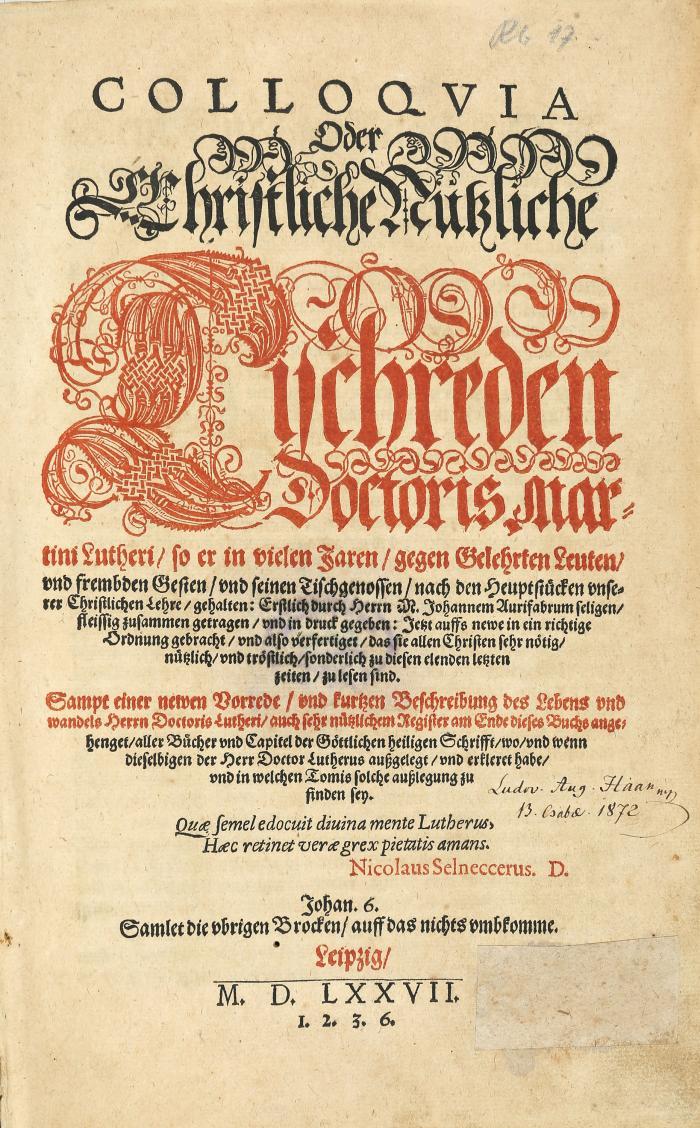 Rb 17
COLLOQVIA
Oder
Christliche Nützliche
Tischreden
Doctoris Mar-
tini Lutheri / so er in vielen Jaren / gegen Gelehrten Leuten /
vnd frembden Gesten / vnd seinen Tischgenossen / nach den Heuptstücken vnse-
rer Christlichen Lehre / gehalten: Erstlich durch Herrn M. Johannem Aurifabrum seligen /
fleissig zusammen getragen / vnd in druck gegeben: Jetzt auffs newe in ein richtige
Ordnung gebracht / vnd also verfertiget / das sie allen Christen sehr nötig /
nützlich / vnd tröstlich / sonderlich zu diesen elenden letzten
zeiten / zu lesen sind.
Sampt einer newen Vorrede / vnd kurtzen Beschreibung des Lebens vnd
wandels Herrn Doctoris Lutheri / auch sehr nützlichem Register am Ende dieses Buchs ange-
henget / aller Bücher vnd Capitel der Göttlichen heiligen Schrifft / wo / vnd wenn
dieselbigen der Herr Doctor Lutherus außgelegt / vnd erkleret habe /
vnd in welchen Tomis solche außlegung zu
finden sey.
Ludov. Aug. Haan
13. Csabæ. 1872
Quæ semel edocuit diuina mente Lutherus,
Hæc retinet veræ grex pietatis amans.
Nicolaus Selneccerus. D.
Johan. 6.
Samlet die vbrigen Brocken / auff das nichts vmbkomme.
Leipzig /
M. D. LXXVII.
1. 2. 3. 6.